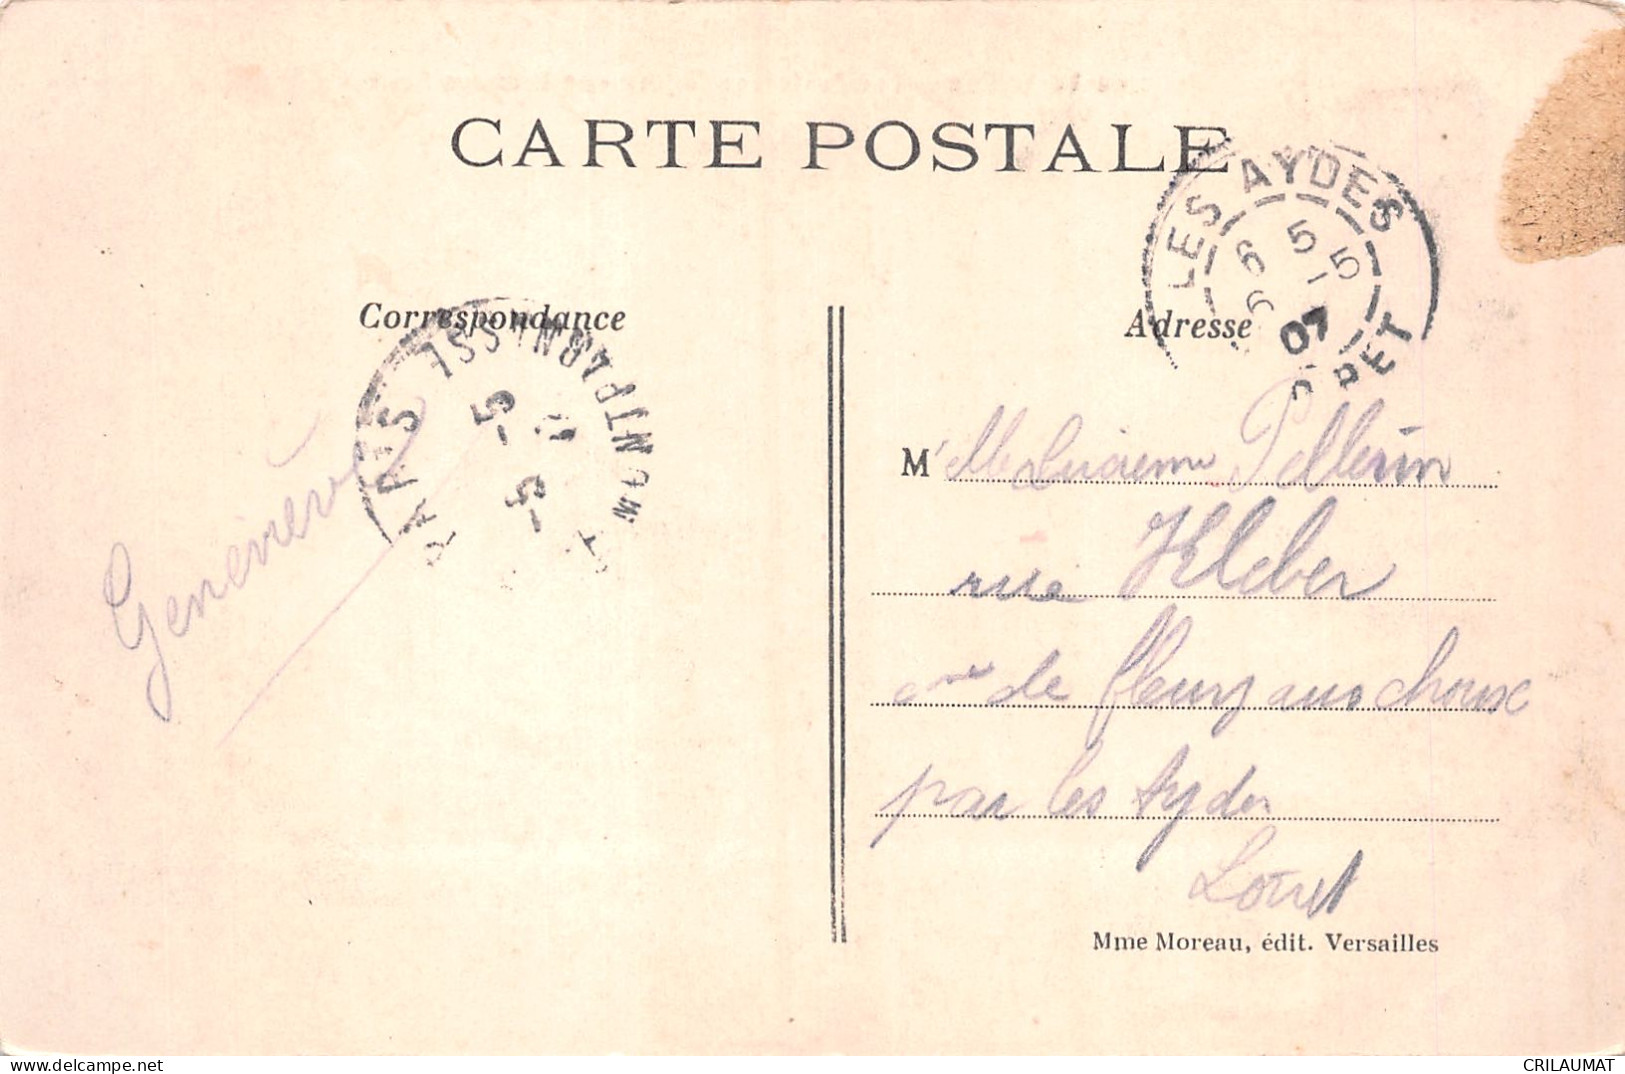 CARTE POSTALE
LES AYDES
6 5
6 -5
07
RET
Correspondance
PARIS MONTPARNASSE
-5
-5
Adresse
Geneviève
M elle Lucienne Pellerin
rue Kleber
cne de fleury aux choux
par les Aydes
Loiret
Mme Moreau, édit. Versailles
delcampe.net
CRILAUMAT